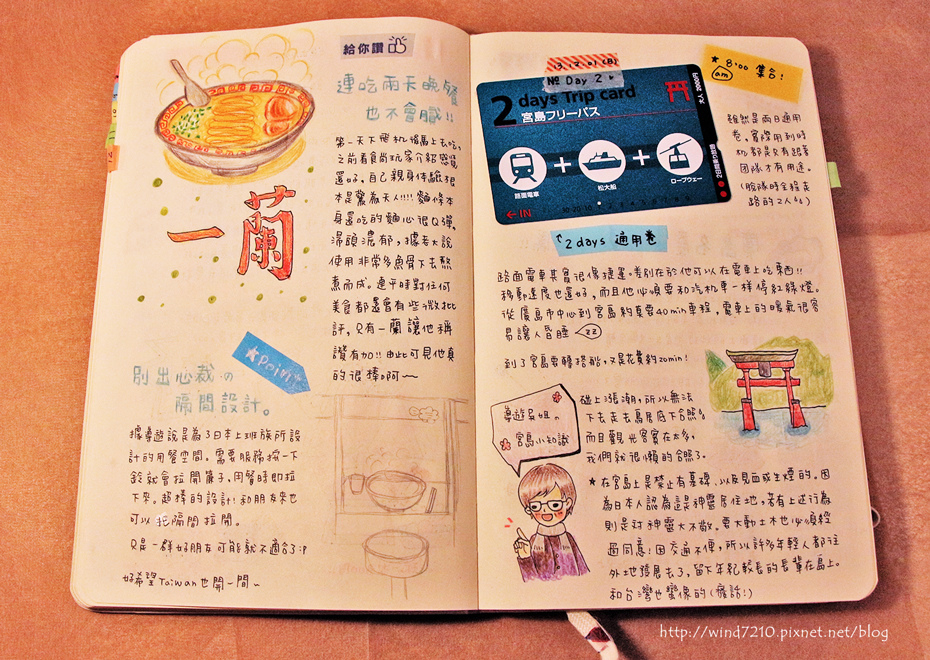 給你讚
連吃兩天晚餐
也不會膩!!
第一天下飛机後馬上去吃,
之前看食尚玩家介紹感覺
還好。自己親身体驗根
本是驚為天人!!!! 麵條本
身還吃的麵心很Q彈,
湯頭濃郁,據老大說
使用非常多魚骨下去熬
煮而成。連平時對任何
美食都還會有些微批
評,只有一蘭讓他稱
讚有加!! 由此可見他真
的很棒啊~
一蘭
★Point
別出心裁の
隔間設計。
據導遊說是為了日本上班族所設
計的用餐空間。需要服務按一下
鈴就會拉開簾子,用餐時即拉
下來。超棒的設計! 和朋友來也
可以把隔間拉開。
只是一群好朋友可能就不適合了:P
好希望Taiwan也開一間~
13.12.01(日)
№ Day 2
2 days Trip card
宮島フリーパス
大人 2000円
路面電車
+
松大船
+
ロープウェー
2日間乗り放題
←IN
★ 8:00 集合!
am
雖然是兩日通用
卷,實際用到時
机都是只有跟著
團隊才有用途。
(脫隊時全程走
路的2人組)
↑2days 通用卷
路面電車其實很像捷運。差別在於他可以在電車上吃東西!!
移動速度也還好,而且他必須要和汽机車一樣停紅綠燈。
從廣島市中心到宮島約莫要40min車程,電車上的暖氣很容
易讓人昏睡 zz
到了宮島要轉搭船,又是花費約20min!
導遊呂姐の
宮島小知識
碰上漲潮,所以無法
下去走去鳥居底下合照。
而且觀光客實在太多,
我們就很懶的合照了.
★在宮島上是禁止有墓碑,以及見血或生煙的。因
為日本人認為這是神靈居住地,若有上述行為
則是對神靈大不敬。要大動土木也必須經
過同意! 因交通不便,所以許多年輕人都往
外地發展去了,留下年紀較長的長輩在島上。
和台灣也蠻像的 (廢話!)
http://wind7210.pixnet.net/blog